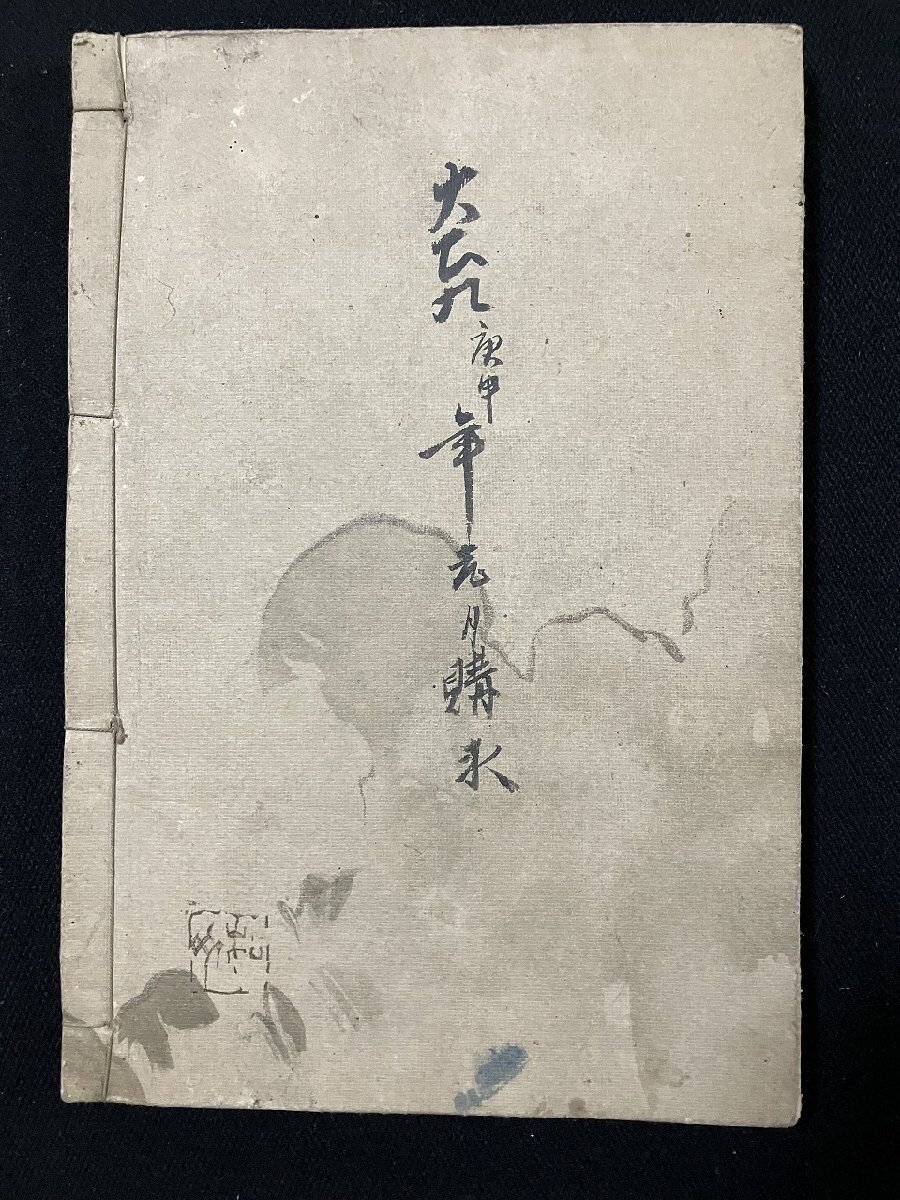 大正九庚申年元月購求